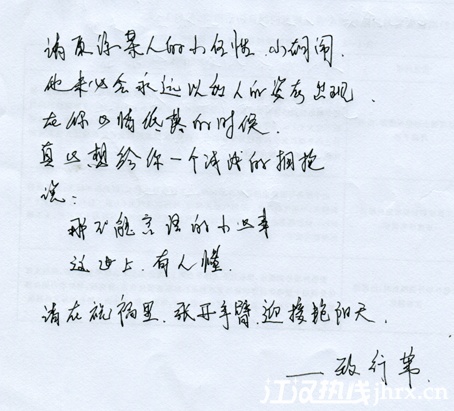 请原谅某人的小任性.小胡闹.
他未必会永远以的人的姿态出现.
在你心情低落的时候.
真心想给你一个浅浅的拥抱
说:
那不能言语的小心事
这世上.有人懂.
请在祝福里.张开手臂.迎接艳阳天.
——致行
江汉热线jhrx.cn